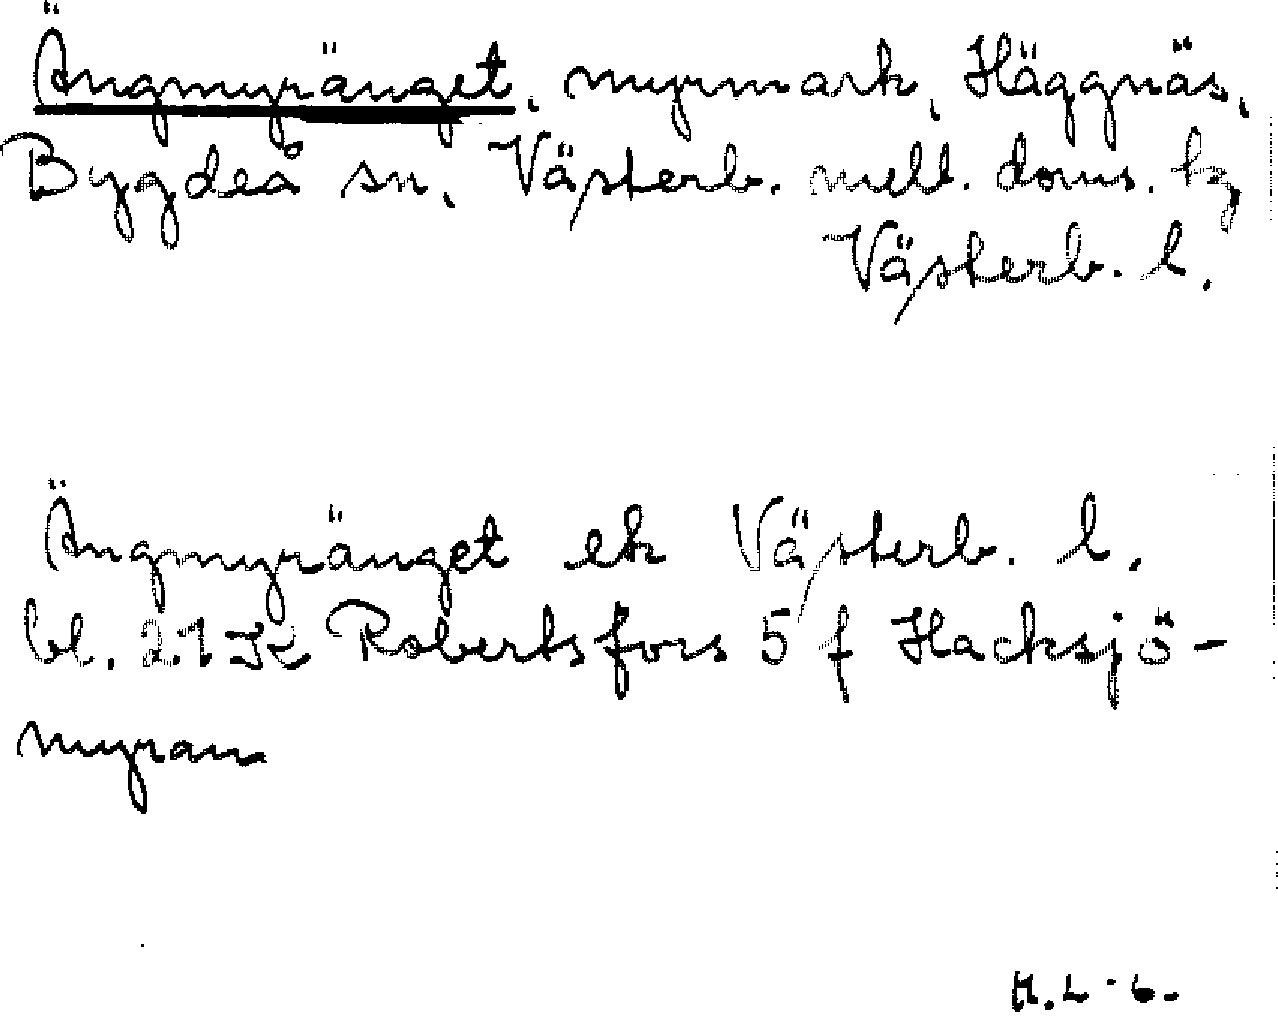 Ängmyränget, myrmark, Häggnäs,
Bygdeå sn, Västerb. mell. doms. k,
Västerb. l.
Ängmyränget ek Västerb. l.
bl. 21 K Robertsfors 5 f Hacksjö-
myran
H.L-b.